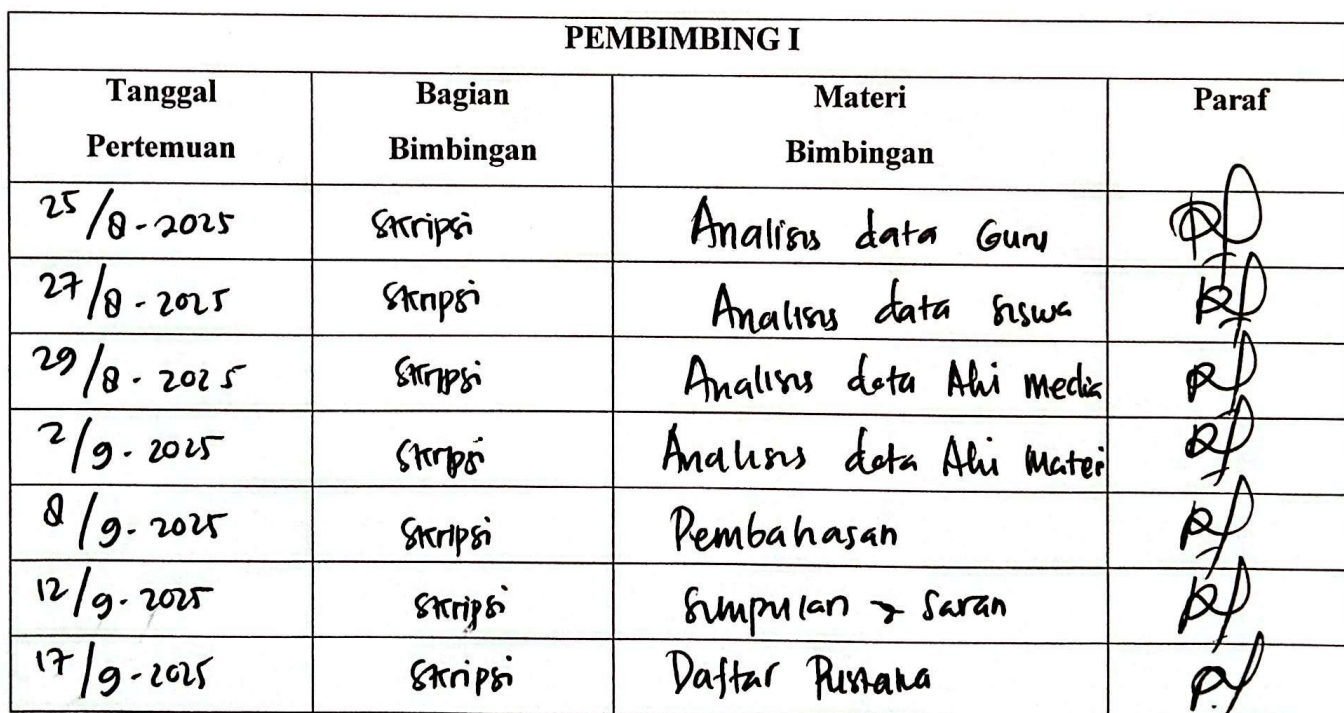 PEMBIMBING I
Tanggal Pertemuan Bagian Bimbingan Materi Bimbingan Paraf
25/8-2025 Skripsi Analisis data Guru
27/8-2025 Skripsi Analisis data siswa
29/8-2025 Skripsi Analisis data Ahi media
2/9-2025 Skripsi Analisis data Ahi Materi
8/9-2025 Skripsi Pembahasan
12/9-2025 Skripsi Simpulan & Saran
17/9-2025 Skripsi Daftar Pustaka